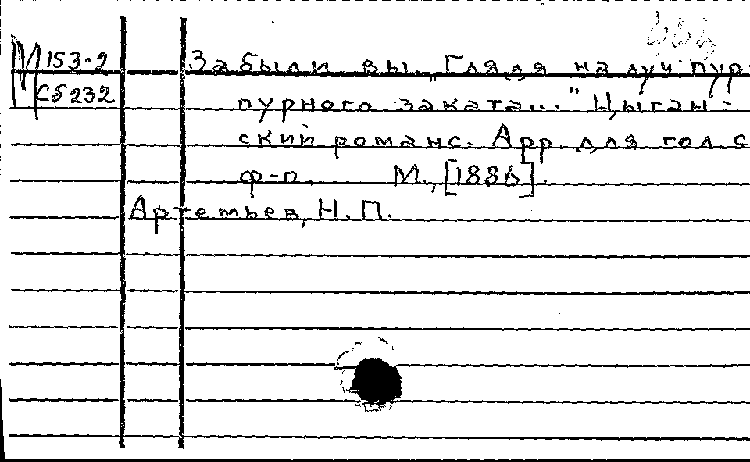 М 153-2
Сб 232
Забыли вы. "Глядя на луч пур-
пурного заката..." Цыган-
ский романс. Арр. для гол. с
ф-п. М., [1886].
Артемьев, Н. П.